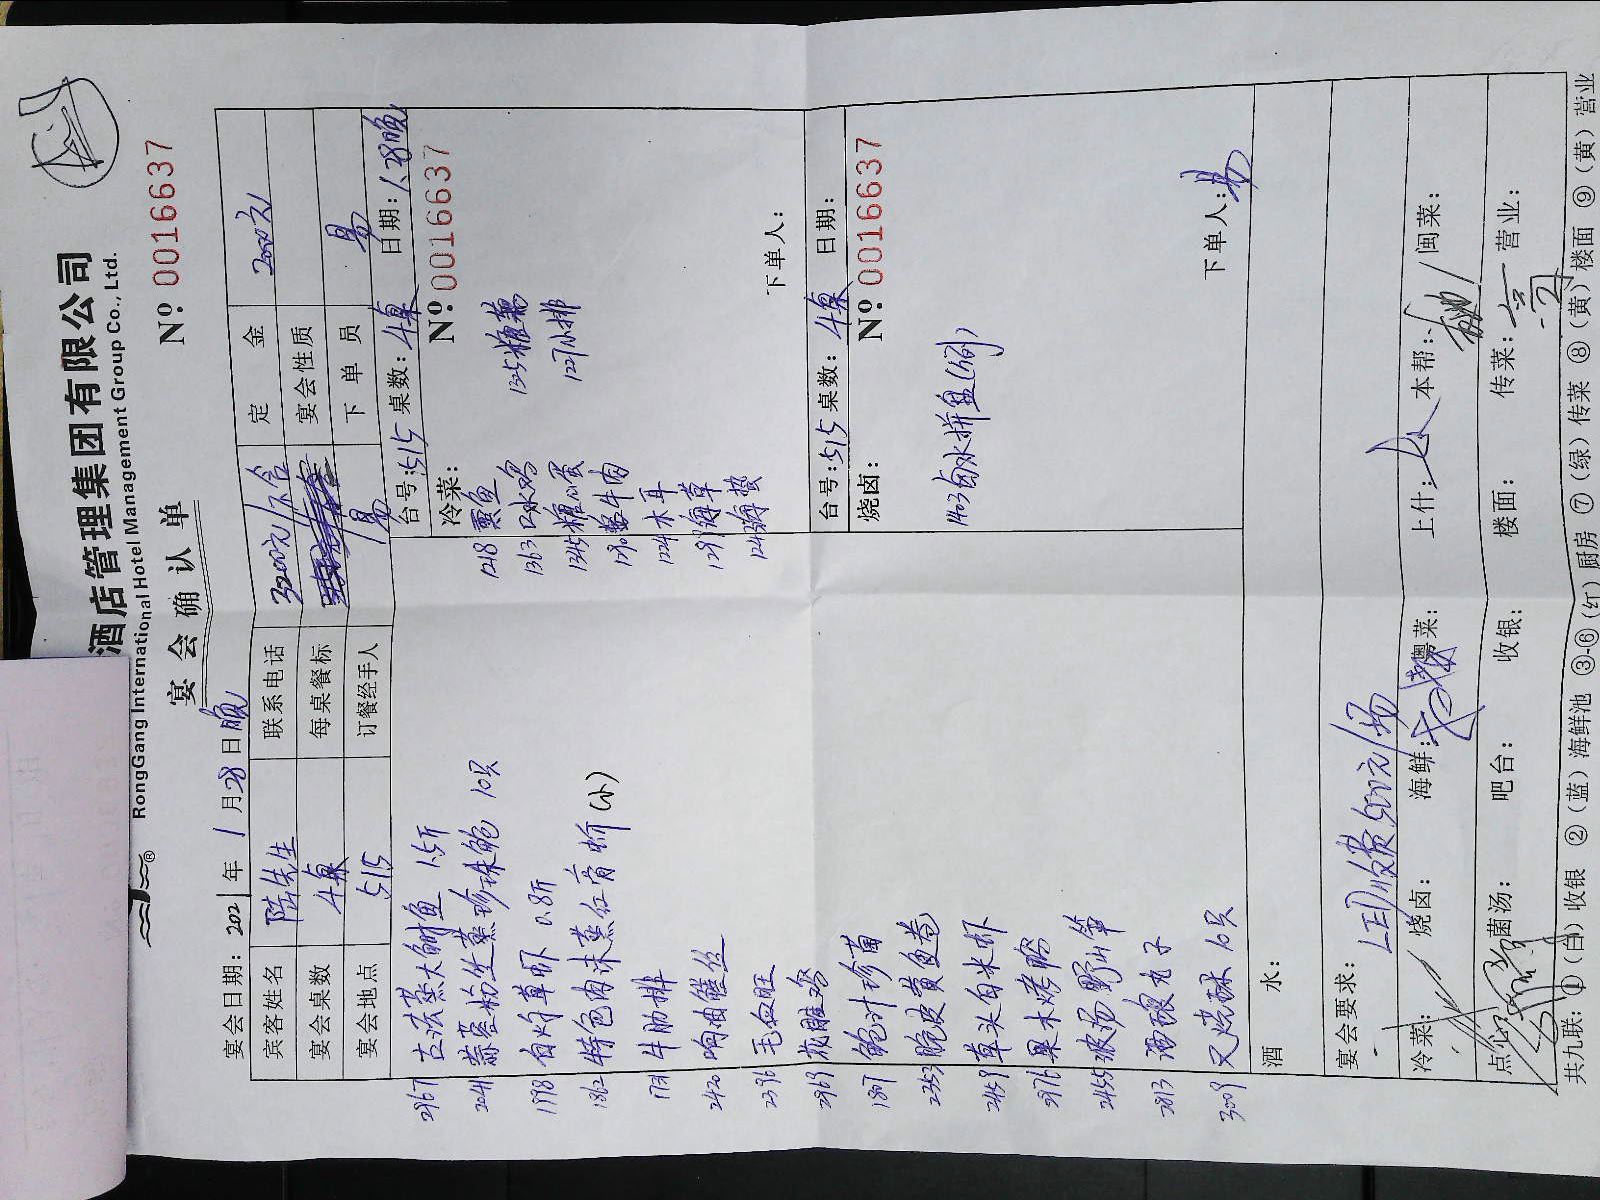 酒店管理集团有限公司
RongGang International Hotel Management Group Co., Ltd.
宴会确认单
Nº 0016637
宴会日期: 2021年1月28日晚
宾客姓名 陆先生 联系电话 3200元/不含 定金 2000元
宴会桌数 4桌 每桌餐标 宴会性质
宴会地点 515 订餐经手人 易 下单员 易
2967 古法蒸大鲥鱼 1.5斤
2041 蒜蓉粉丝蒸珍珠鲍 10只
1998 白灼草虾 0.8斤
1862 特色肉沫蒸红膏蚧(小)
1731 牛肋排
2420 响油鳝丝
2396 毛血旺
2969 花雕鸡
1807 鲍汁珍菌
2353 脆皮黄鱼卷
2459 草头白米虾
2976 果木烤鸭
2455 浓汤野山笋
2813 酒酿丸子
3009 叉烧酥 10只
台号:515 桌数:4桌 日期:1.28晚
冷菜: Nº 0016637
1218 熏鱼
1363 口水鸡
1345 糟心蛋
1290 酱牛肉
1224 木耳
1291 海草
1243 海蜇
1325 糖藕
1227 小排
下单人:
台号:515 桌数:4桌 日期:
烧卤: Nº 0016637
1403 卤水拼盘(例)
下单人:易
酒水:
宴会要求: LED收费500元/场
冷菜: 烧卤: 海鲜: 粤菜: 上什: 本帮: 闽菜:
点心: 菌汤: 吧台: 收银: 楼面: 传菜: 营业:
共九联: ①(白)收银 ②(蓝)海鲜池 ③-⑥(红)厨房 ⑦(绿)传菜 ⑧(黄)楼面 ⑨(黄)营业